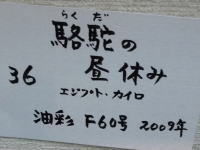 らくだ
駱駝の
36 昼休み
エジプト・カイロ
油彩 F60号 2009年